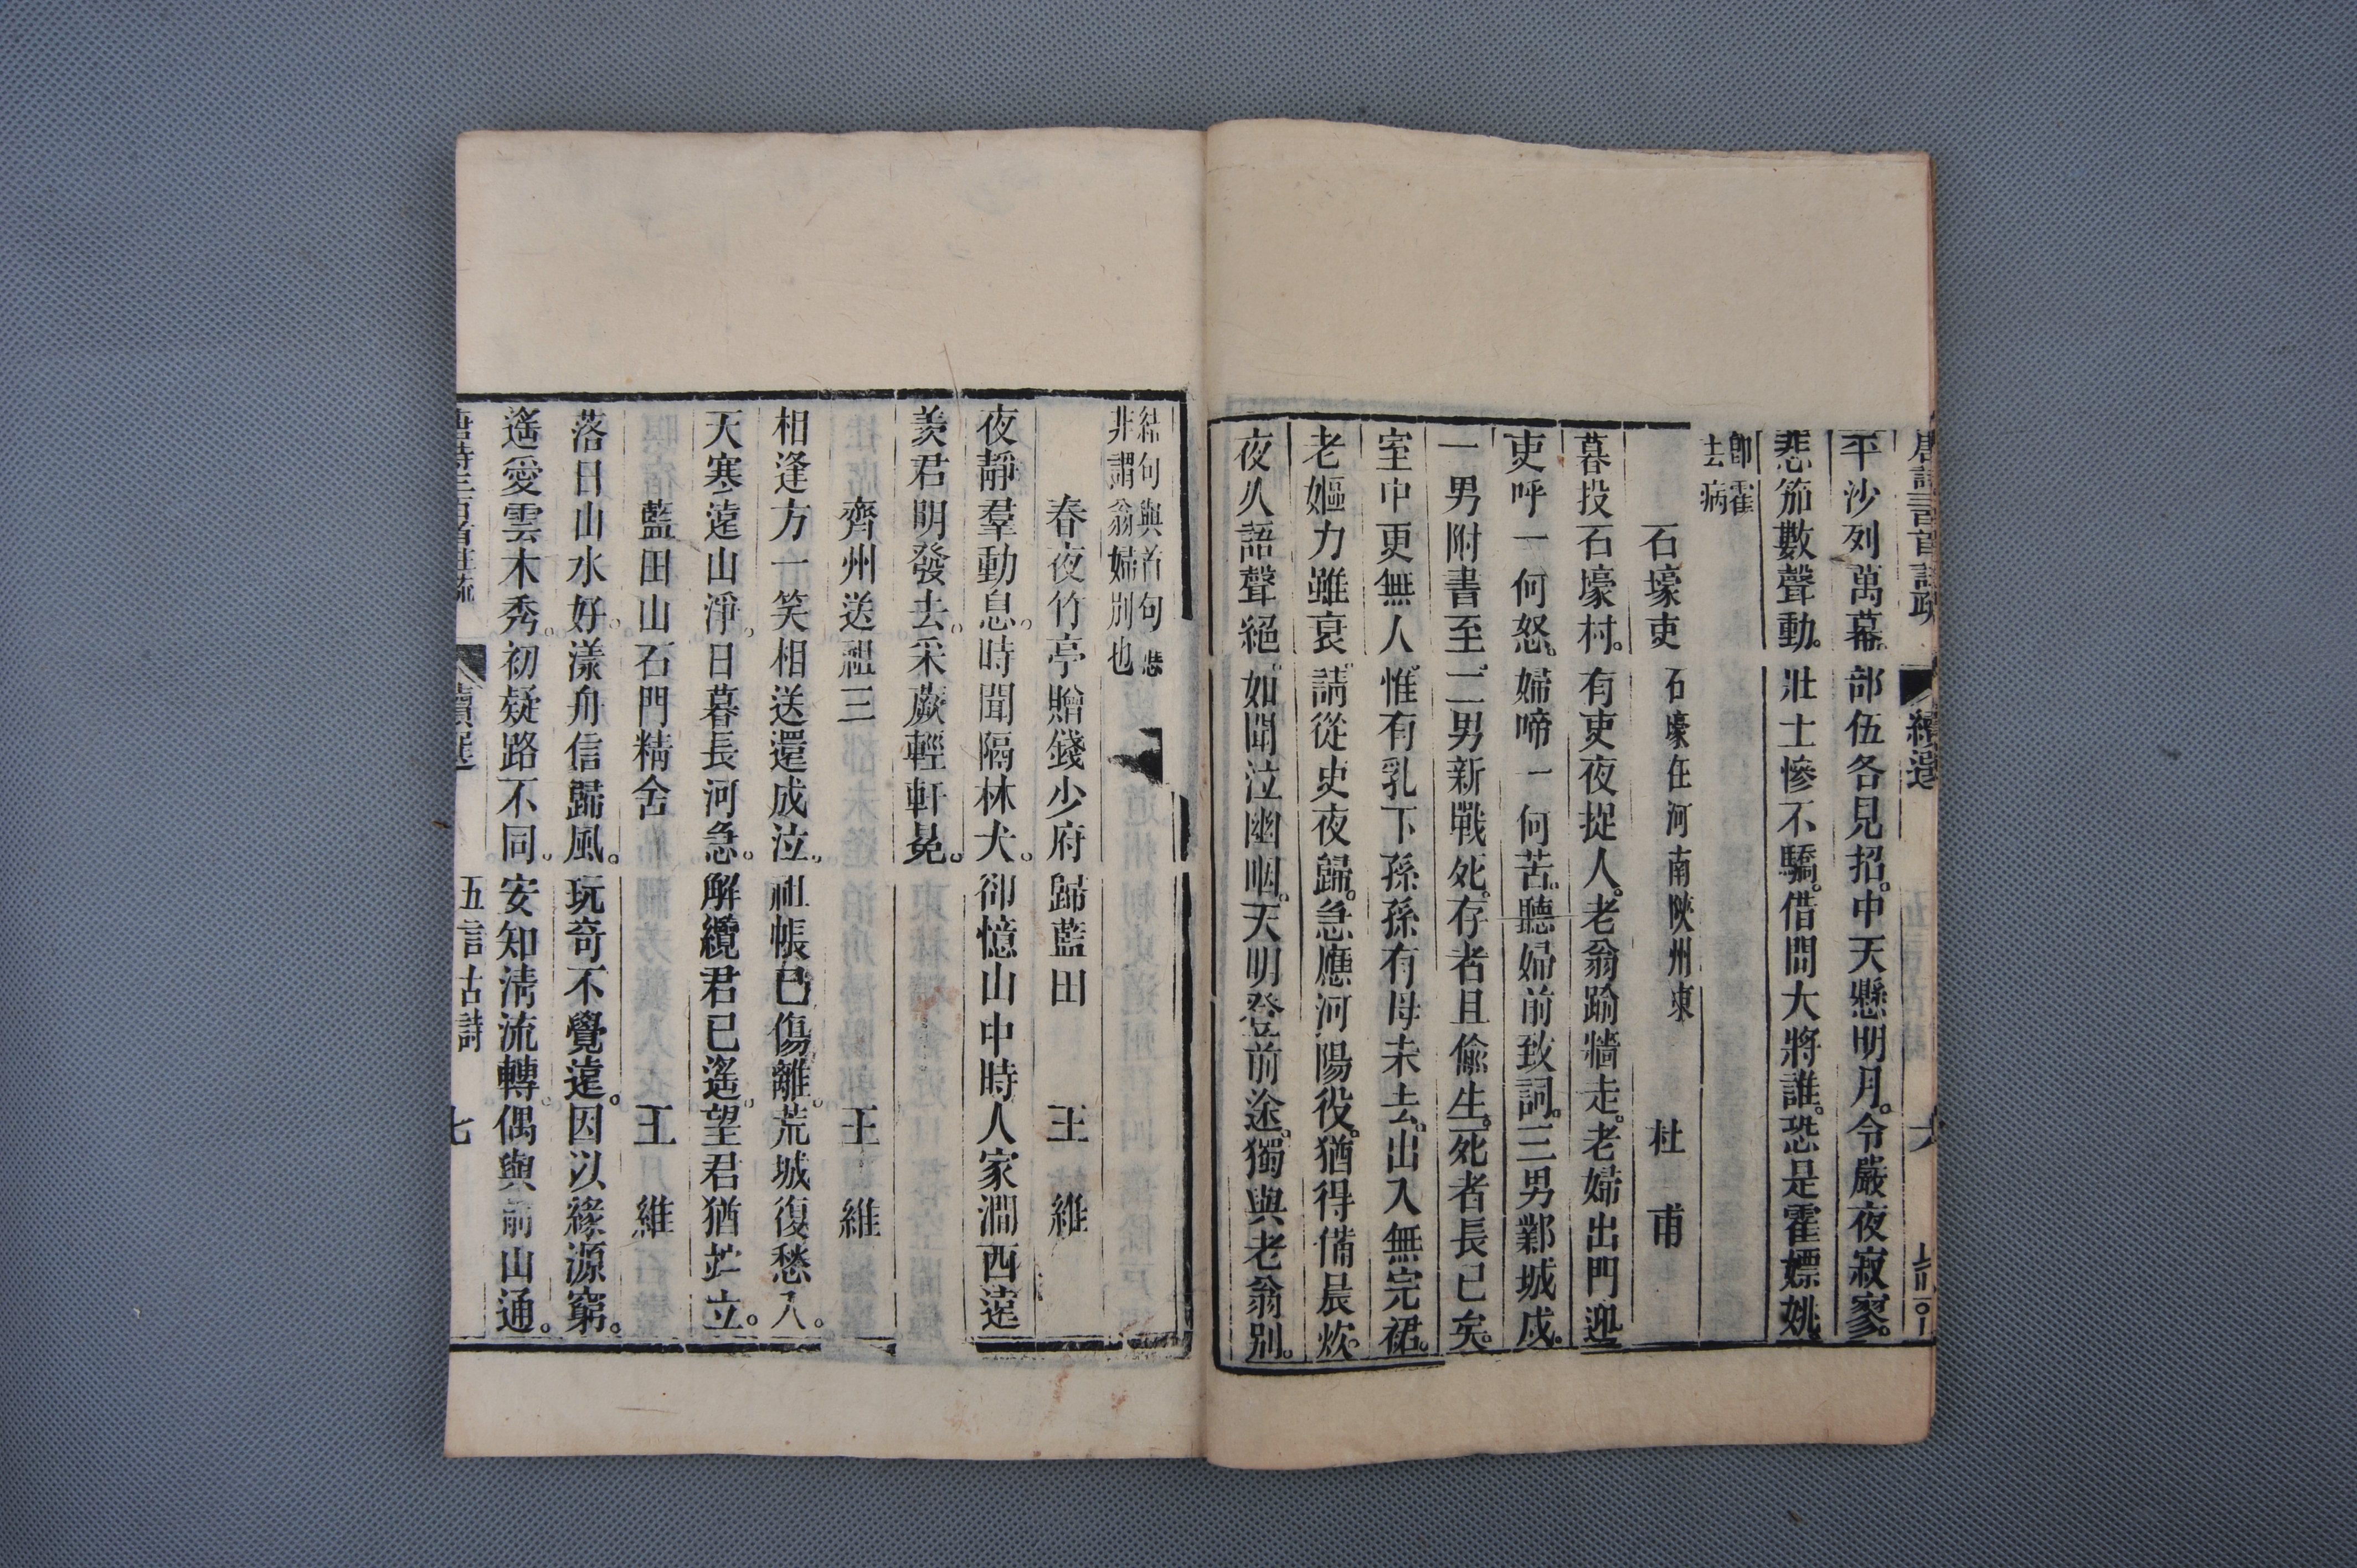 唐詩三百首註疏 續選 六
平沙列萬幕。部伍各見招。中天懸明月。令嚴夜寂寥。
悲笳數聲動。壯士慘不驕。借問大將誰。恐是霍嫖姚。
即霍
去病
石壕吏 石壕在河南陝州東 杜甫
暮投石壕村。有吏夜捉人。老翁踰牆走。老婦出門迎
吏呼一何怒。婦啼一何苦。聽婦前致詞。三男鄴城戍。
一男附書至。二男新戰死。存者且偷生。死者長已矣。
室中更無人。惟有乳下孫。孫有母未去。出入無完裙。
老嫗力雖衰。請從吏夜歸。急應河陽役。猶得備晨炊。
夜久語聲絕。如聞泣幽咽。天明登前途。獨與老翁別。
結句與首句
非謂翁婦別也
春夜竹亭贈錢少府歸藍田 王維
夜靜羣動息。時聞隔林犬。卻憶山中時人家澗西遠
羨君明發去。采蕨輕軒冕。
齊州送祖三 王維
相逢方一笑相送還成泣。祖帳已傷離。荒城復愁入。
天寒遠山淨。日暮長河急。解纜君已遙。望君猶竚立。
藍田山石門精舍 王維
落日山水好。漾舟信歸風。玩奇不覺遠。因以緣源窮。
遙愛雲木秀。初疑路不同。安知清流轉。偶與前山通。
唐詩三百首註疏 續選 五言古詩 七